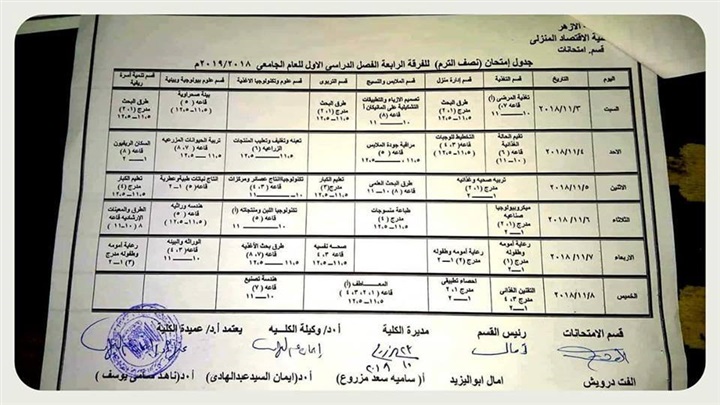 الازهر
ية الاقتصاد المنزلى
قسم. امتحانات
جدول إمتحان (نصف الترم) للفرقة الرابعة الفصل الدراسي الاول للعام الجامعي ٢٠١٩/٢٠١٨م
اليوم التاريخ قسم التغذية قسم إدارة منزل قسم الملابس والنسيج قسم التربوى قسم علوم وتكنولوجيا الاغذية قسم علوم بيولوجية وبيئية قسم تنمية أسرة ريفية
السبت ٢٠١٨/١١/٣ تغذية المرضى (أ) قاعه (٧) ١٠ــ١١ طرق البحث مدرج (٢٠١) ١١.٥ــ١٢.٥ تصميم الازياء والتطبيقات التشكيلية على المانيكان أ قاعه (٨) ١٠ــ١١ طرق البحث مدرج (٢٠١) ١١.٥ــ١٢.٥ بيئة صحراوية قاعه (٥) ١١.٥ــ١٢.٥ طرق البحث مدرج (٢٠١) ١١.٥ــ١٢.٥
الاحد ٢٠١٨/١١/٤ تقيم الحالة الغذائية قاعه (٦) (١٠ــ١١) التخطيط للوجبات قاعه (٤، ٣) ١١.٥ــ١٢.٥ مراقبة جودة الملابس قاعه (٥) ١١.٥ــ١٢.٥ تعبئه وتغليف وتعليب المنتجات الزراعيه (١) ١٠ــ١١ تربية الحيوانات المزرعيه قاعه (٨، ٧) ١١.٥ــ١٢.٥ السكان الريفيون قاعه (٨) ١ــ٢
الاثنين ٢٠١٨/١١/٥ تربيه صحيه وغذائيه مدرج (٢٠١) ١ــ٢ طرق البحث العلمى قاعه (٨) ١٠ــ١١ تعليم الكبار مدرج (٤) ١١.٥ــ١٢.٥ تكنولوجيا انتاج عصائر ومركزات قاعه (٤، ٣) ١٠ــ١١ انتاج نباتات طبية وعطرية قاعه (٥) ١ــ٢ تعليم الكبار مدرج (٤) ١١.٥ــ١٢.٥
الثلاثاء ٢٠١٨/١١/٦ ميكروبيولوجيا صناعيه مدرج (٢) ١ــ٢ طباعة منسوجات مدرج (٤) ١١.٥ــ١٢.٥ تكنولوجيا اللبن ومنتجاته (أ) قاعه (٥) ١١.٥ــ١٢.٥ هندسه وراثه قاعه (٥) ١١.٥ــ١٢.٥ الطرق والمعينات الإرشاديه قاعه (٨) ١٠ــ١١
الاربعاء ٢٠١٨/١١/٧ رعاية أمومه وطفوله مدرج (١) ١ــ٢ رعاية أمومه وطفوله مدرج (٢) ١ــ٢ صحه نفسيه قاعه ٤، ٣ ١١.٥ــ١٢.٥ طرق بحث الأغذيه قاعه (٨، ٧) ١١.٥ــ١٢.٥ الوراثه والبيئه قاعه (٣، ٤) ١٠ــ١١ رعاية أمومه وطفوله مدرج (٣) ١ــ٢
الخميس ٢٠١٨/١١/٨ التقنين الغذائى مدرج ٤، ٣ ١ــ٢ احصاء تطبيقى مدرج ٢، أ ١ــ٢ المعـــاطف (أ) قاعه (٢٠١، ٣، ٤) ١١.٥ــ١٢.٥ هندسة تصنيع قاعه (٧) ١٠ــ١١
قسم الامتحانات رئيس القسم مديرة الكلية أ.د/ وكيلة الكلــيه يعتمد أ.د/ عميدة الكلية
أمال
ألفت درويش امال ابواليزيد أ/ ساميه سعد مزروع) أ.د/ايمان السيدعبدالهادى) أ.د(ناهد يوسف)